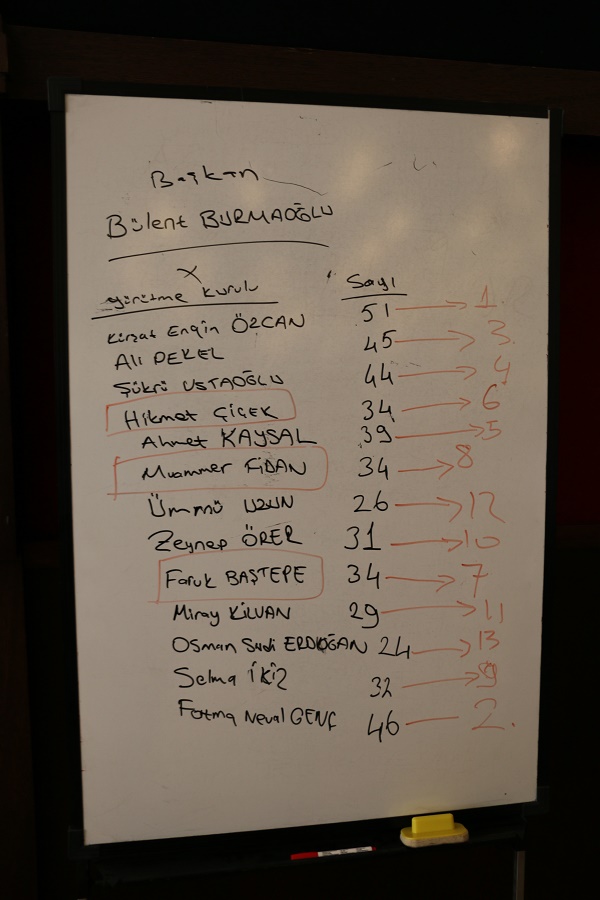 Başkan
Bülent BURMAOĞLU
X
Yürütme Kurulu Sayı
Kürşat Engin ÖZCAN 51 → 1.
Ali PEKEL 45 → 3.
Şükrü USTAOĞLU 44 → 4
Hikmet ÇİÇEK 34 → 6
Ahmet KAYSAL 39 → 5
Muammer FİDAN 34 → 8
Ümmü UZUN 26 → 12
Zeynep ÖRER 31 → 10
Faruk BAŞTEPE 34 → 7
Miray KILVAN 29 → 11
Osman Sadi ERDOĞAN 24 → 13
Selma İKİZ 32 → 9
Fatma Neval GENÇ 46 — 2.